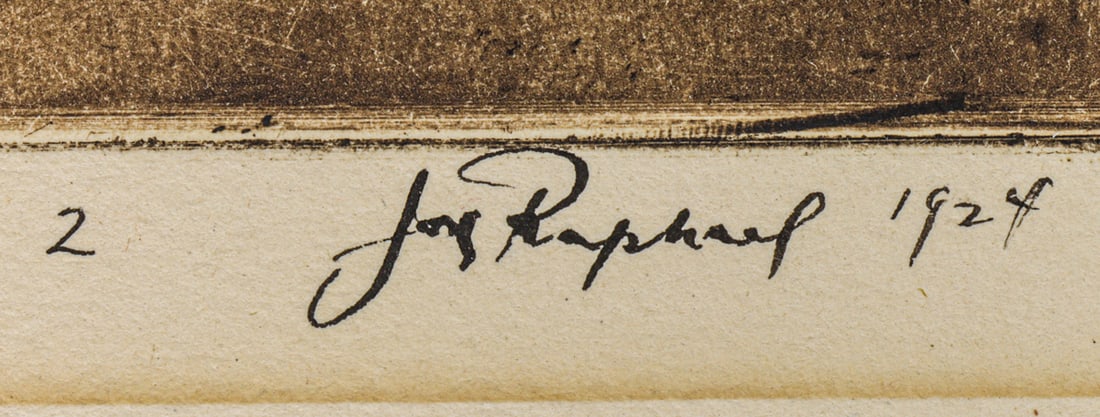 2 Jos Raphael 1924